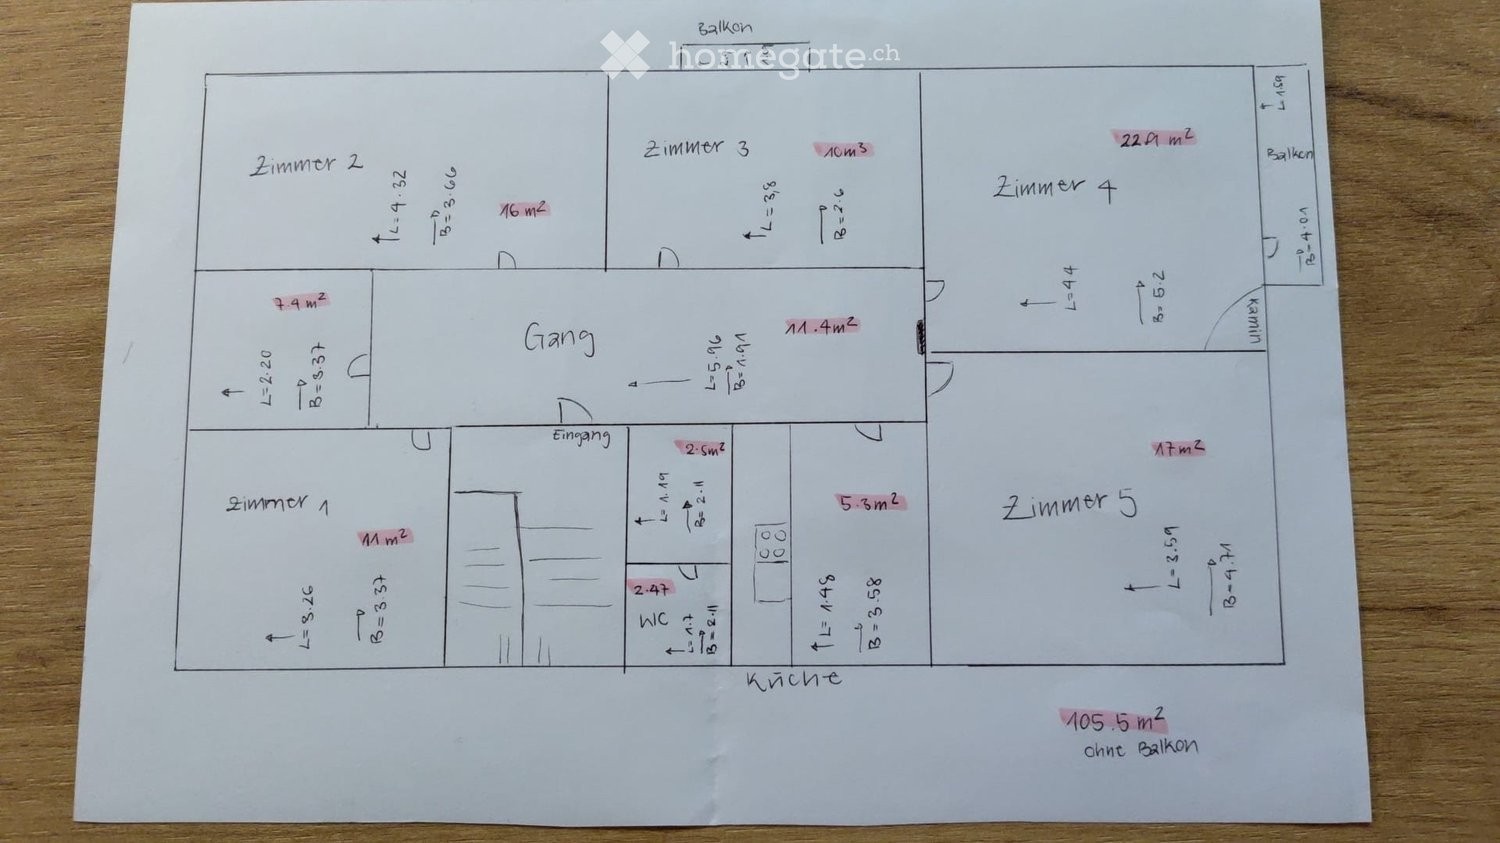 Balkon
homegate.ch
L=1.59
Zimmer 2
L=4.32
B=3.66
16 m²
Zimmer 3
10 m³
L=3,8
B=2.6
Zimmer 4
L=4.4
B=5.2
Balkon
B=4.01
Kamin
7.4 m²
L=2.20
B=3.37
Gang
11.4 m²
L=5.96
B=1.91
Eingang
Zimmer 1
11 m²
L=3.26
B=3.37
2.5m²
L=1.19
B=2.11
2.47
WC
L=1.7
B=2.11
5.3m²
L=1.48
B=3.58
Küche
17 m²
Zimmer 5
L=3.59
B=4.71
105.5 m²
ohne Balkon